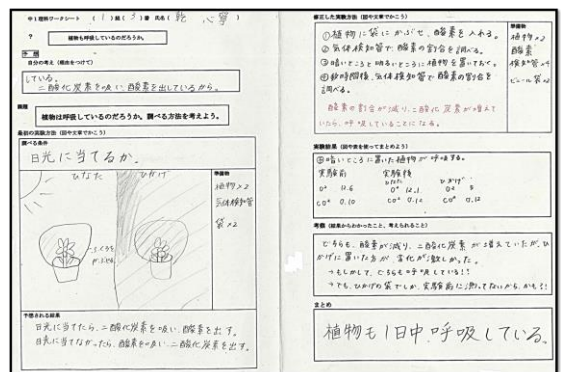 中1理科ワークシート ( )組( 3 )番 氏名(
?
植物も呼吸しているのだろうか。
予想
自分の考え(理由をつけて)
している。
二酸化炭素を吸い、酸素を出しているから。
課題
植物は呼吸しているのだろうか。調べる方法を考えよう。
最初の実験方法(図や文章でかこう)
調べる条件
日光に当てるか。
ひなた ひかげ
準備物
植物×2
気体検知管
袋×2
予想される結果
日光に当てたら、二酸化炭素を吸い、酸素を出す。
日光に当てなかったら、酸素を吸い、二酸化炭素を出す。
修正した実験方法(図や文章でかこう)
①植物に袋にかぶせ、酸素を入れる。
②気体検知管で、酸素の割合を調べる。
③暗いところと明るいところに植物を置いておく。
④数時間後、気体検知管で酸素の割合を
調べる。
酸素の割合が減り、二酸化炭素が増えて
いたら、呼吸していることになる。
準備物
植物×2
酸素
検知管×4
ビニール袋×2
実験結果(図や表を使ってまとめよう)
暗いところに置いた植物が呼吸する。
実験前 実験後
ひなた ひかげ
考察(結果からわかったこと、考えられること)
どちらも、酸素が減り、二酸化炭素が増えていたが、ひ
かげに置いた方が、変化が激しかった。
→もしかして、どちらも呼吸している!!
まとめ
植物も1日中、呼吸している。